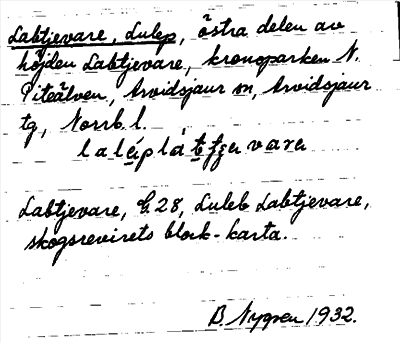 Labtjevare, Lulep, östra delen av
höjden Labtjevare, kronoparken N.
Piteälven, Arvidsjaur sn, Arvidsjaur
tg, Norrb. l.
Labtjevare, G.28, Luleb Labtjevare,
skogsrevirets block-karta.
B. Nygren 1932.